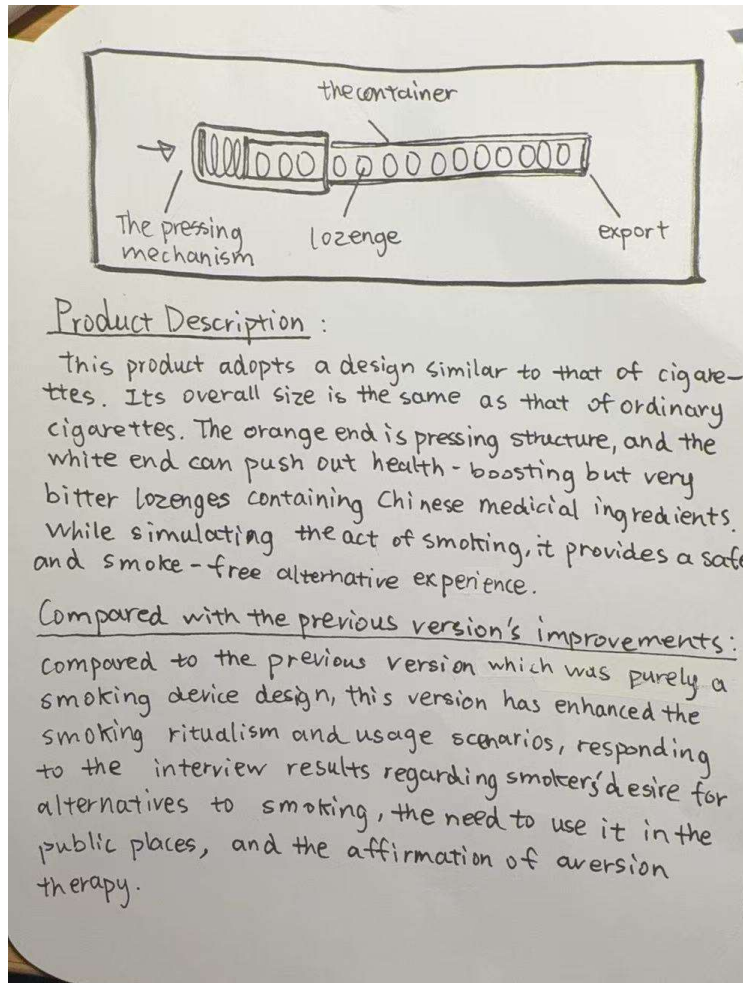 the container
The pressing
mechanism
lozenge
export
Product Description :
This product adopts a design similar to that of cigare-
ttes. Its overall size is the same as that of ordinary
cigarettes. The orange end is pressing structure, and the
white end can push out health-boosting but very
bitter lozenges containing Chinese medicial ingredients.
While simulating the act of smoking, it provides a safe
and smoke-free alternative experience.
Compared with the previous version's improvements:
compared to the previous version which was purely a
smoking device design, this version has enhanced the
smoking ritualism and usage scenarios, responding
to the interview results regarding smokers' desire for
alternatives to smoking, the need to use it in the
public places, and the affirmation of aversion
therapy.